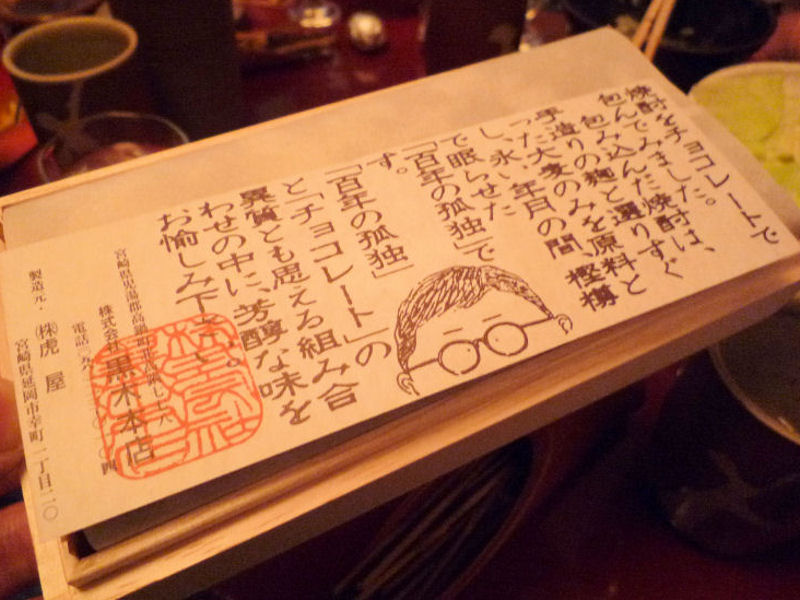 焼酎をチョコレートで
包んでみました。焼酎は、
包み込んだ選りすぐ
手造りの麹のみを原料と
った大麦年月の間、樫樽
し、永い
で眠らせた
「百年の孤独」で
す。
「百年の孤独」
と「チョコレート」の
異質とも思える組み合
わせの中に、芳醇な味を
お愉しみ下さい。
株式会社 黒木本店
製造元・㈱虎屋
宮崎県延岡市幸町一丁目二〇